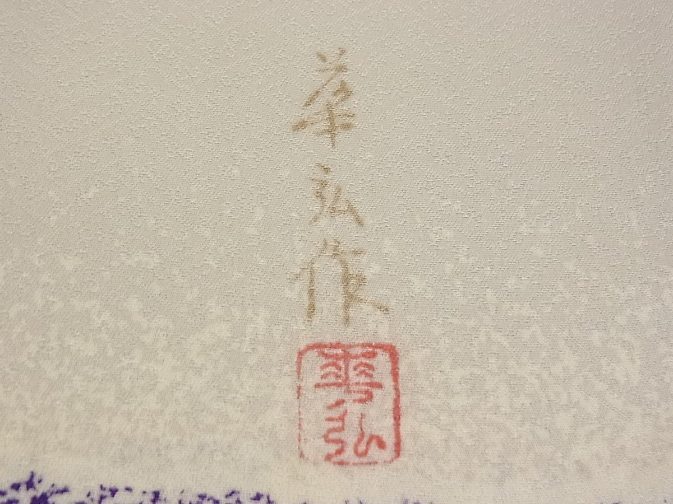 華弘作
華弘